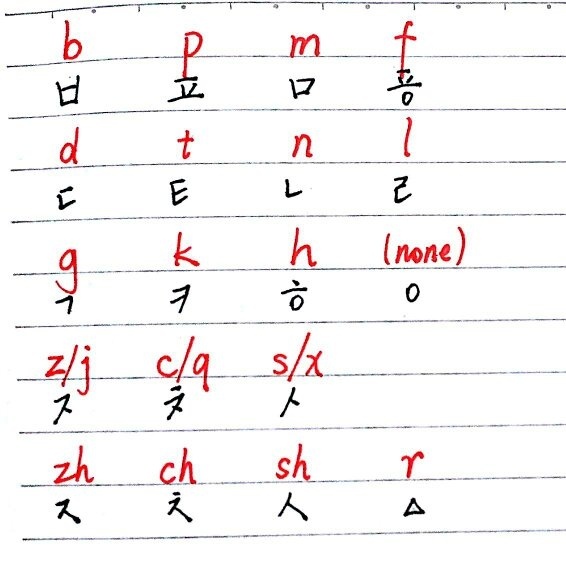 b p m f
ㅂ ㅍ ㅁ ㆄ
d t n l
ㄷ ㅌ ㄴ ㄹ
g k h (none)
ㄱ ㅋ ㅎ ㅇ
z/j c/q s/x
ᅎ ᅔ ᄼ
zh ch sh r
ᅐ ᅕ ᄾ ㅿ